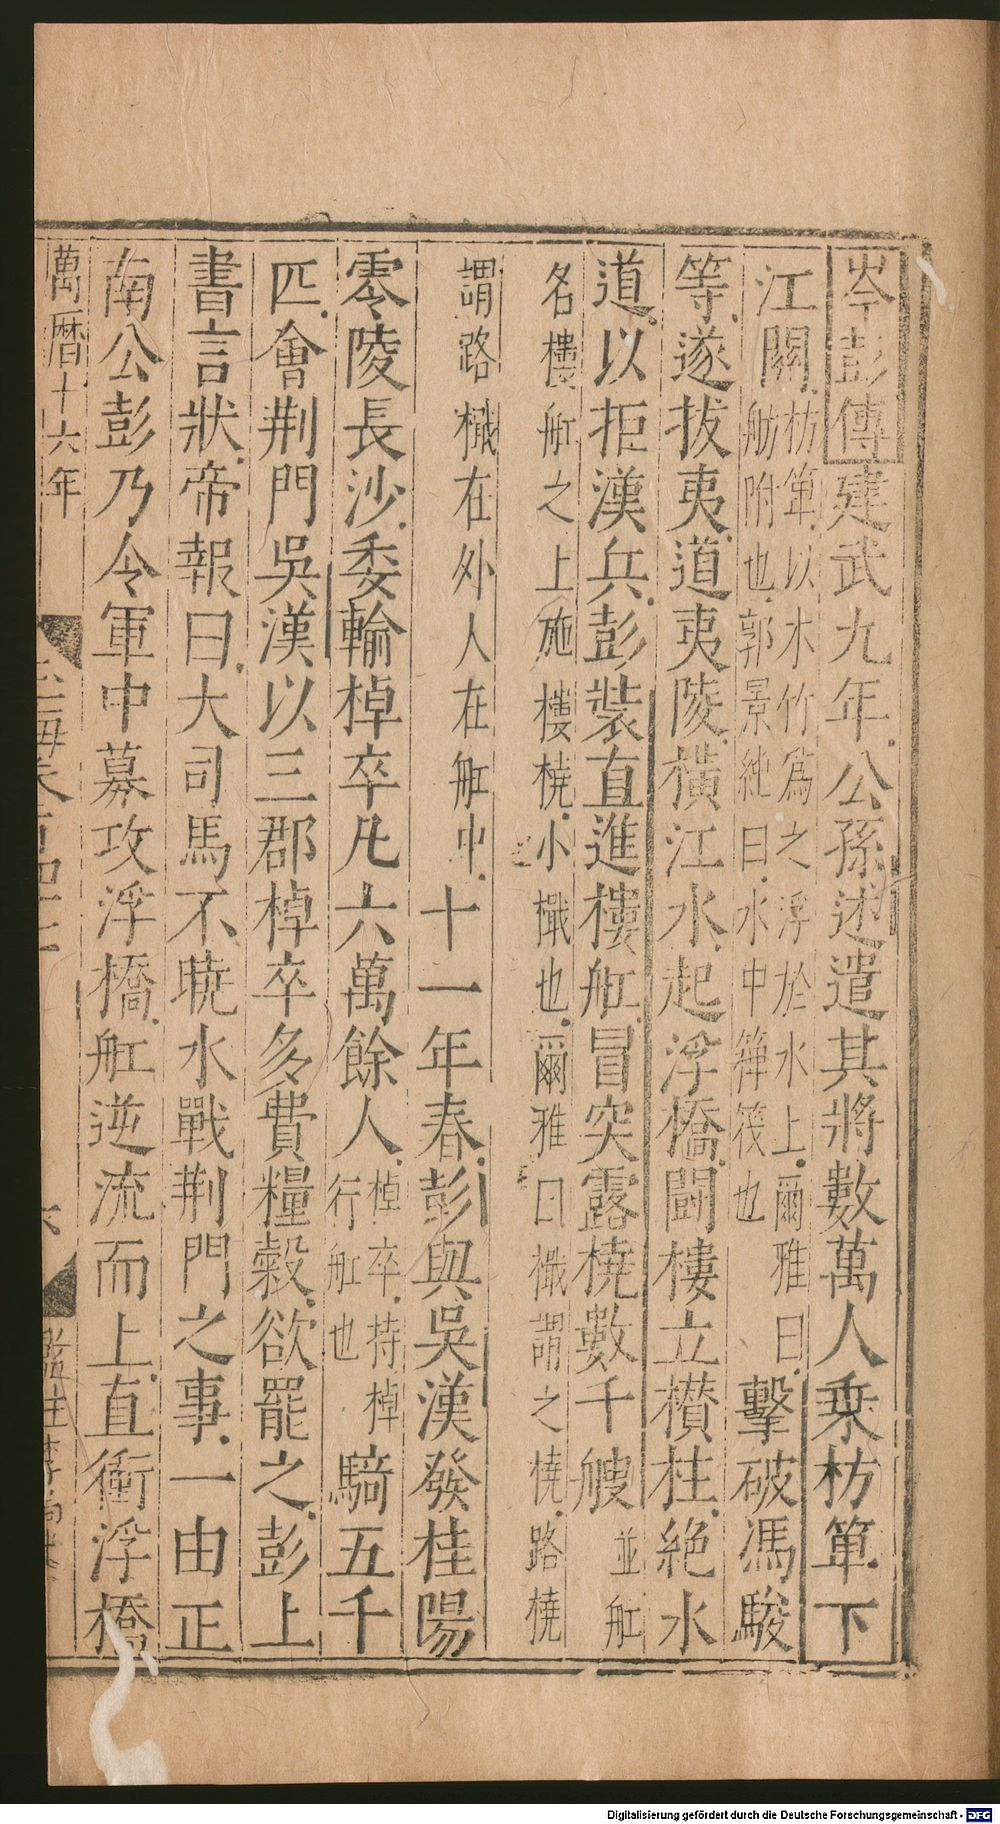 岑彭傳建武九年公孫述遣其將數萬人乗枋箄下
江關枋箄以木竹爲之浮於水上爾雅曰
舫泭也郭景純曰水中箄筏也擊破馮駿
等遂拔夷道夷陵橫江水起浮橋鬪樓立欑柱絶水
道以拒漢兵彭裝直進樓舡冒突露橈數千艘並舡
名樓舡之上施樓橈小檝也爾雅曰檝謂之橈路橈
謂路檝在外人在舡中十一年春彭與吳漢發桂陽
零陵長沙委輸棹卒凡六萬餘人棹卒持棹
行舡也騎五千
匹會荆門吳漢以三郡棹卒多費糧穀欲罷之彭上
書言狀帝報曰大司馬不曉水戰荆門之事一由正
南公彭乃令軍中募攻浮橋舡逆流而上直衝浮橋
萬曆十六年
Digitalisierung gefördert durch die Deutsche Forschungsgemeinschaft - DFG